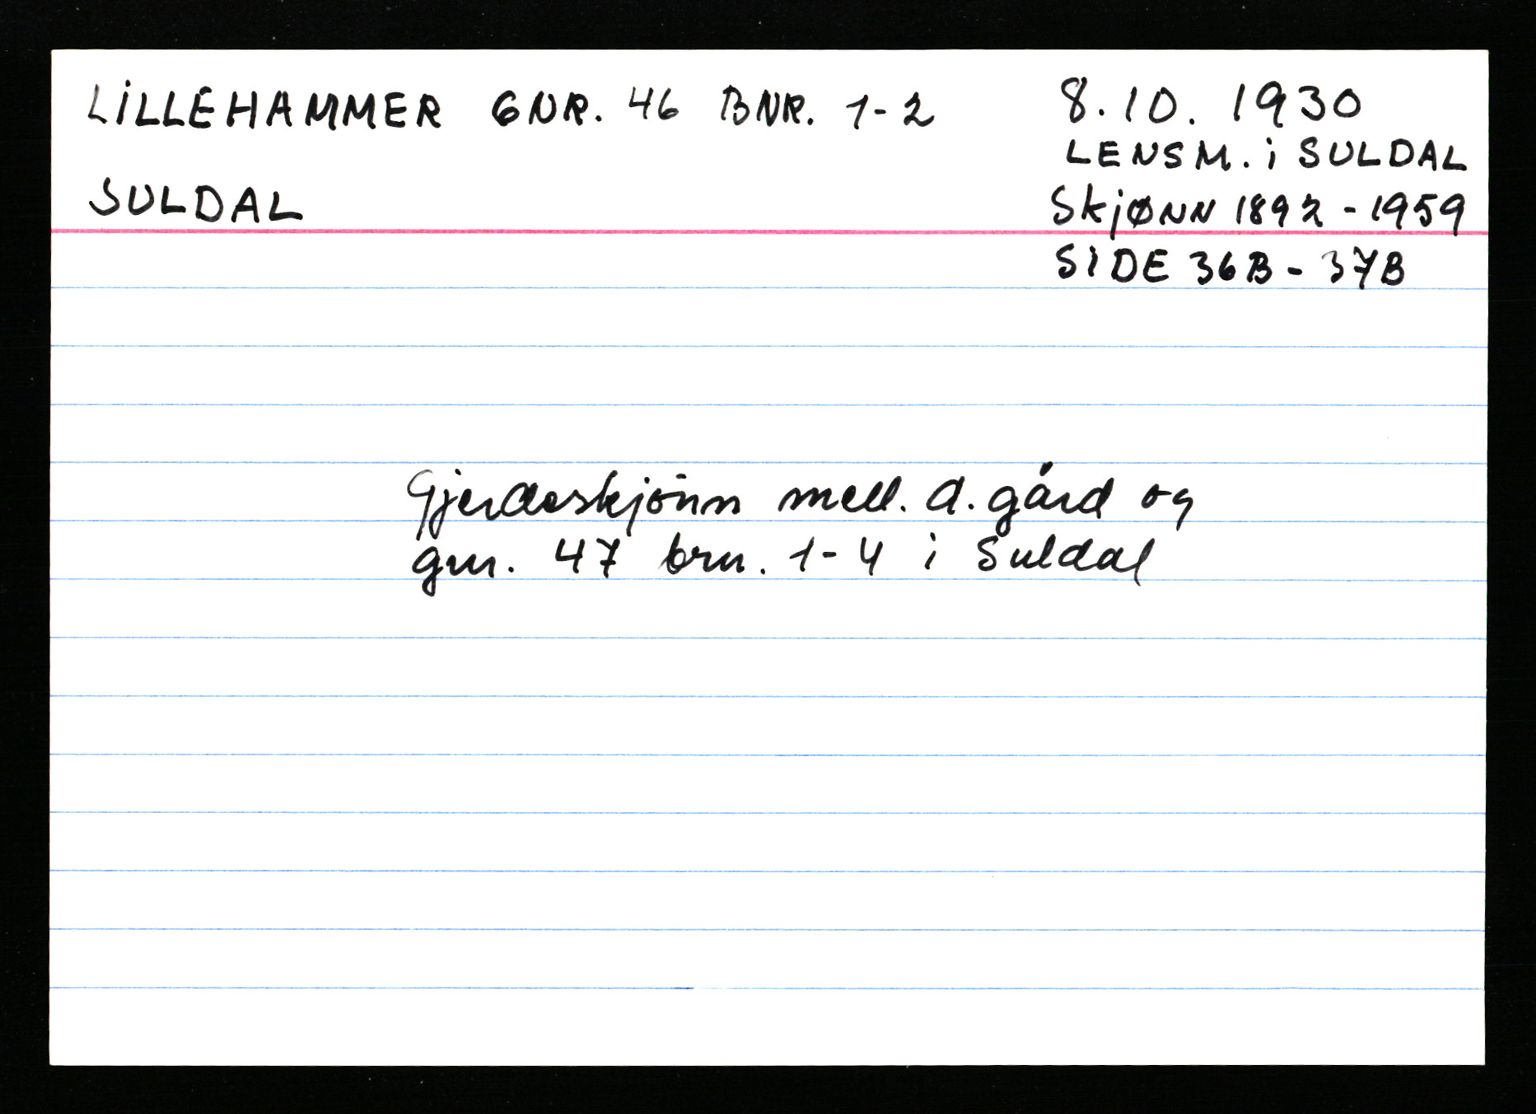 LILLEHAMMER GNR. 46 BNR. 1-2
SULDAL
8.10. 1930
LENSM. i SULDAL
SKJØNN 1892 - 1959
SIDE 36B - 37B
Gjerdeskjønn mell. d. gård og
gnr. 47 brn. 1-4 i Suldal